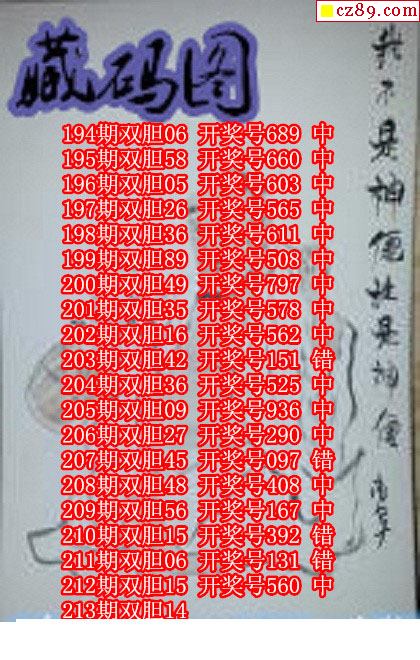 cz89.com
藏码图
194期双胆06 开奖号689 中
195期双胆58 开奖号660 中
196期双胆05 开奖号603 中
197期双胆26 开奖号565 中
198期双胆36 开奖号611 中
199期双胆89 开奖号508 中
200期双胆49 开奖号797 中
201期双胆35 开奖号578 中
202期双胆16 开奖号562 中
203期双胆42 开奖号151 错
204期双胆36 开奖号525 中
205期双胆09 开奖号936 中
206期双胆27 开奖号290 中
207期双胆45 开奖号097 错
208期双胆48 开奖号408 中
209期双胆56 开奖号167 中
210期双胆15 开奖号392 错
211期双胆06 开奖号131 错
212期双胆15 开奖号560 中
213期双胆14
我不是神但也是神